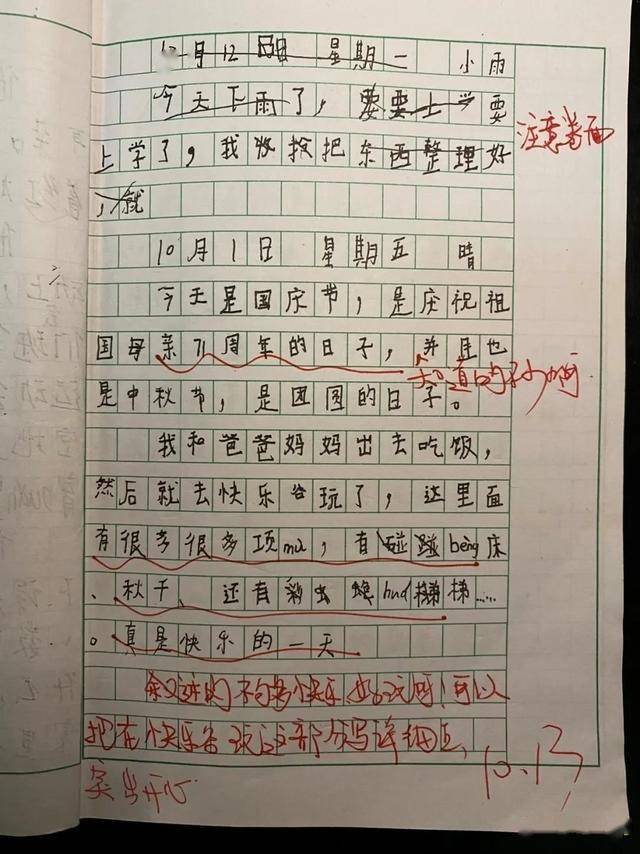 12月12日 星期一 小雨
今天下雨了，要要上学要
上学了，我收拾把东西整理好
，就
注意卷面
10月1日 星期五 晴
今天是国庆节，是庆祝祖
国母亲71周年的日子，并且也
知道的不少啊
是中秋节，是团圆的日子。
我和爸爸妈妈出去吃饭，
然后就去快乐谷玩了，这里面
有很多很多项mù，有碰蹦bèng床
、秋千、还有彩虫 huá梯……
。真是快乐的一天
叙述的 快乐 好玩啊！可以
把在快乐谷玩这部分写详细点，
突出开心
10.13